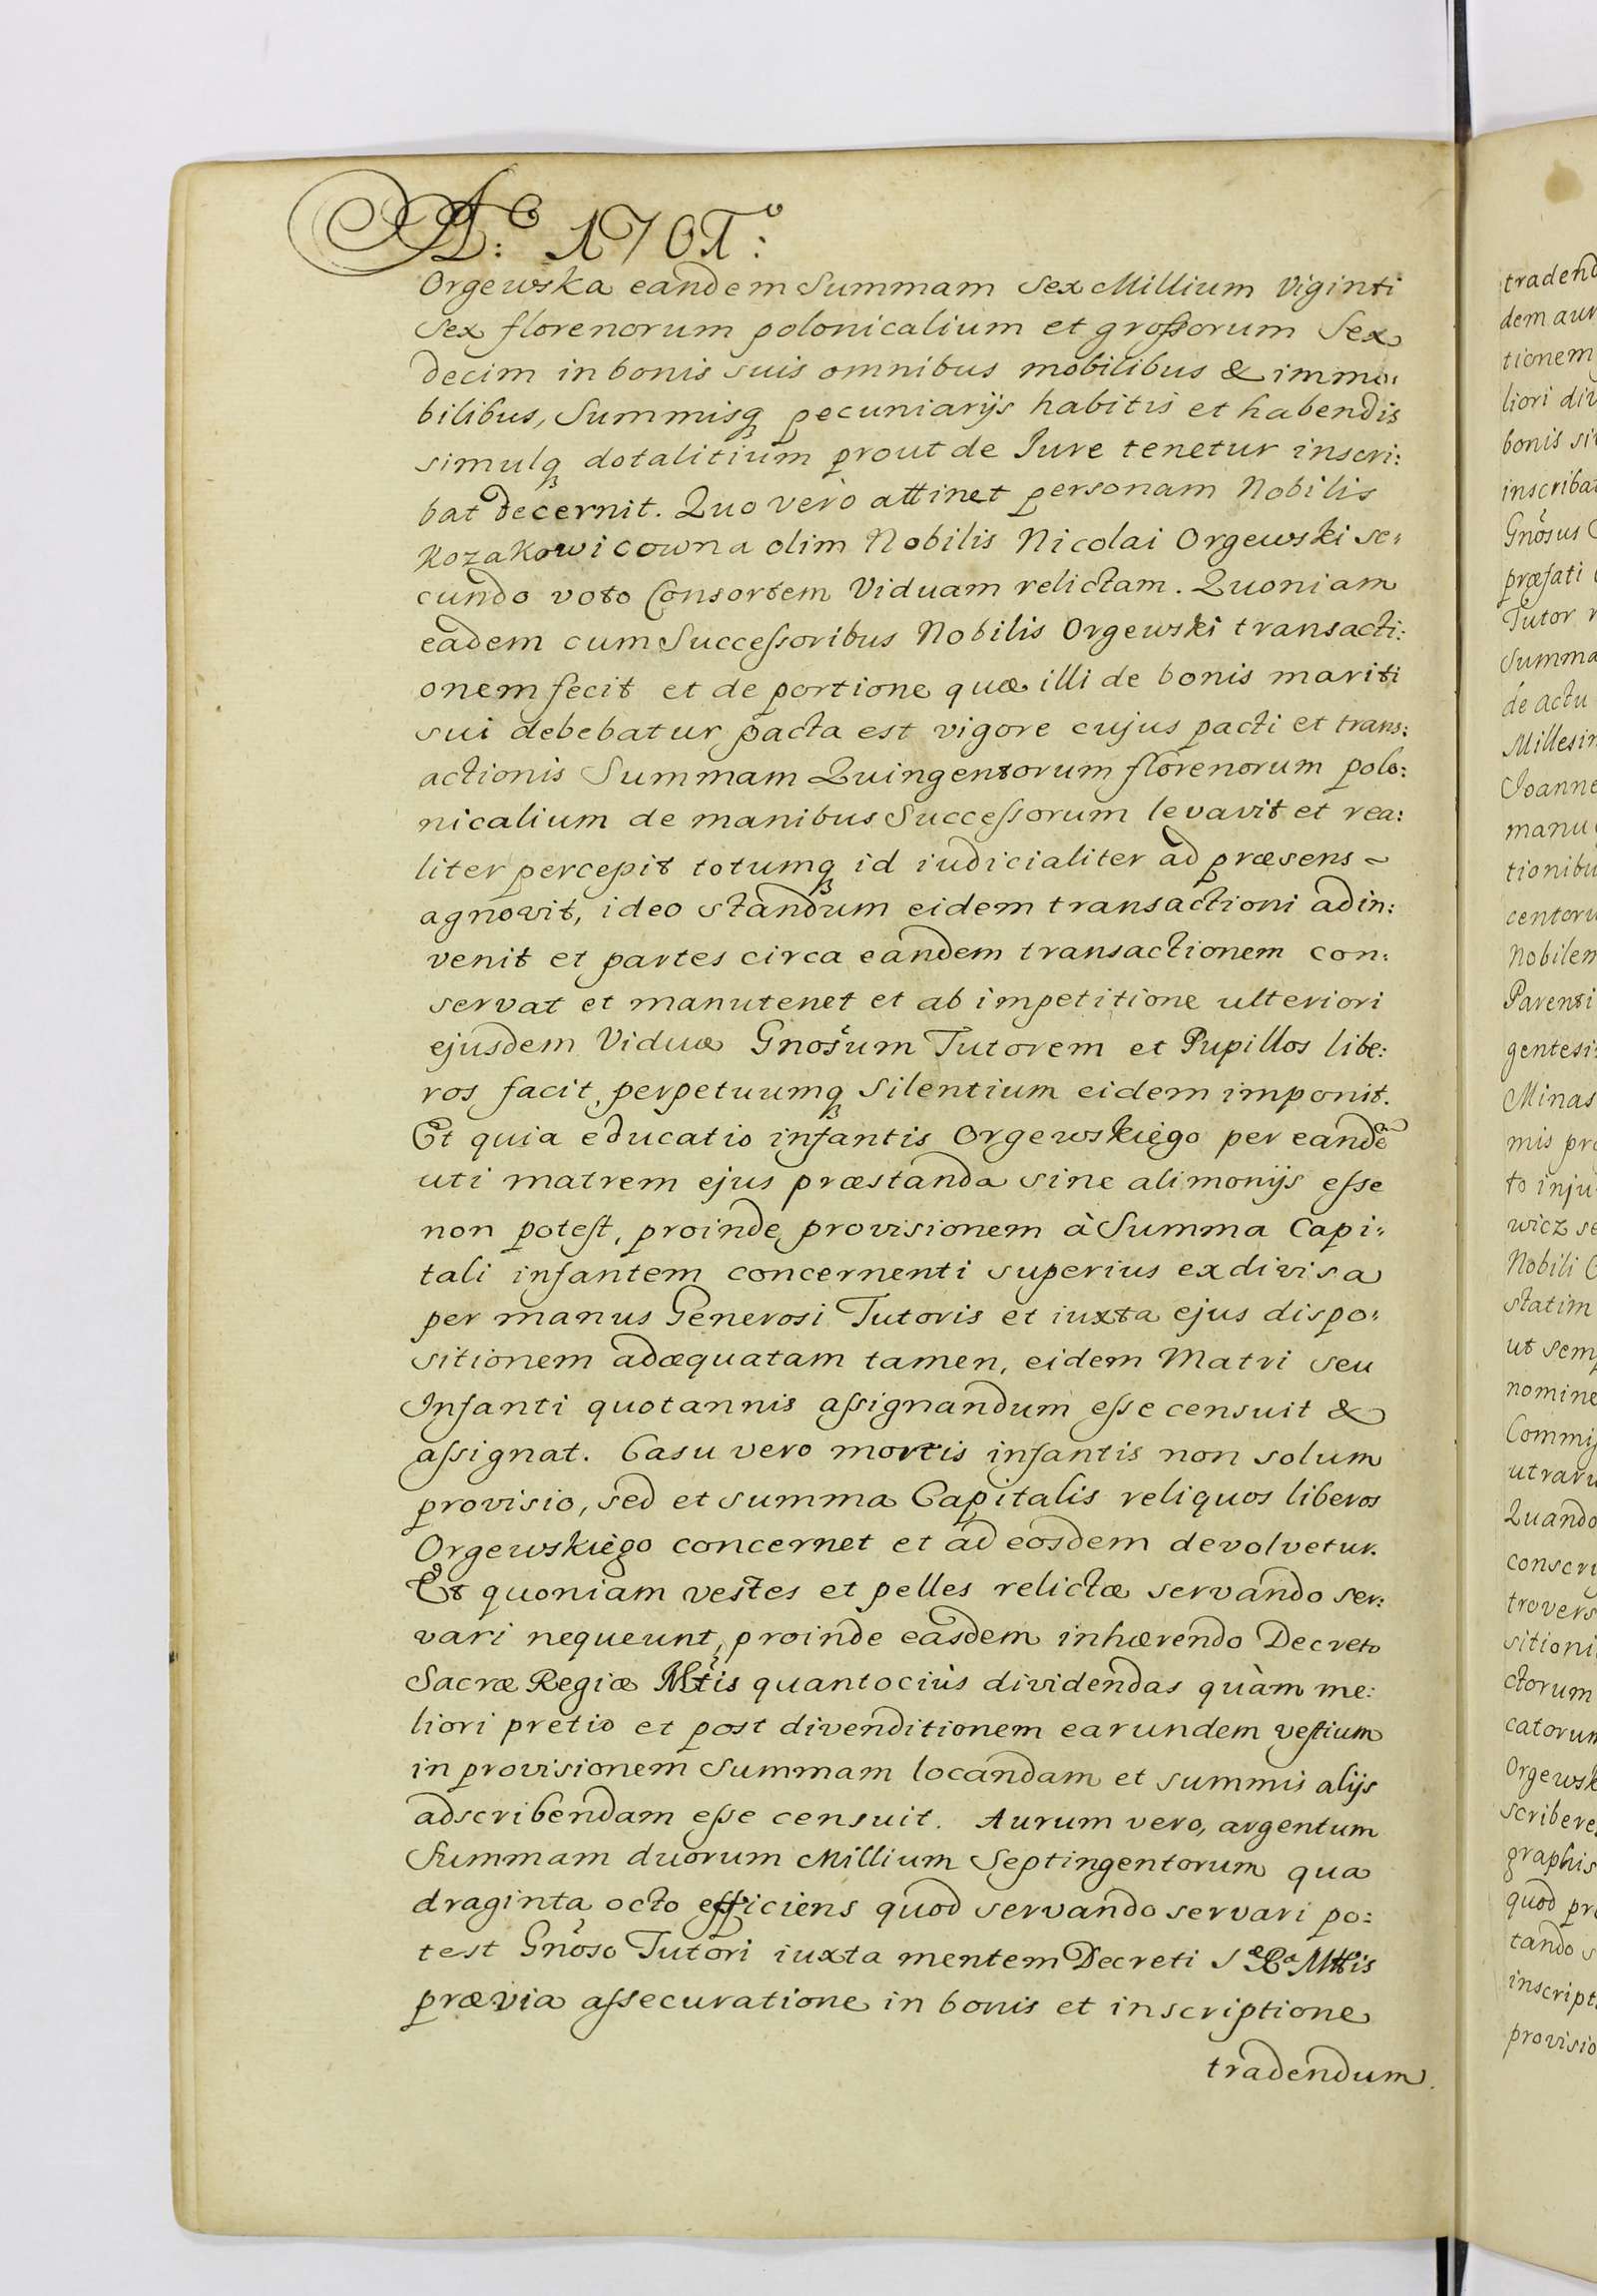 Aº: 1701º:
Orgewska eandem Summam Sex Millium Viginti
Sex florenorum polonicalium et grossorum Sex
decim in bonis suis omnibus mobilibus & immo:
bilibus, Summisq₃ pecuniarijs habitis et habendis
simulq₃ dotalitium prout de Jure tenetur inscri:
bat decernit. Quo verò attinet personam Nobilis
Kozakowicowna olim Nobilis Nicolai Orgewski se:
cundo voto Consortem Viduam relictam. Quoniam
eadem cum Successoribus Nobilis Orgewski transacti:
onem fecit et de portione quæ illi de bonis mariti
sui debebatur pacta est vigore cujus pacti et trans:
actionis Summam Quingentorum florenorum polo:
nicalium de manibus Successorum levavit et rea:
liter percepit totumq₃ id iudicialiter ad præsens ~
agnovit, ideo standum eidem transactioni adin:
venit et partes circa eandem transactionem con:
servat et manutenet et ab impetitione ulteriori
ejusdem Viduæ Gnosum Tutorem et Pupillos libe:
ros facit, perpetuumq₃ Silentium eidem imponit.
Et quia educatio infantis Orgewskiego per eandẽ
uti matrem ejus præstanda sine alimonijs esse
non potest, proinde provisionem à Summa Capi:
tali infantem concernenti superius exdivisa
per manus Generosi Tutoris et iuxta ejus dispo:
sitionem adæquatam tamen, eidem Matri seu
Infanti quotannis assignandum esse censuit &
assignat. Casu vero mortis infantis non solum
provisio, sed et summa Capitalis reliquos liberos
Orgewskiego concernet et ad eosdem devolvetur.
Et quoniam vestes et pelles relictæ servando ser:
vari nequeunt, proinde easdem inhærendo Decreto
Sacræ Regiæ Mtis quantociùs dividendas quàm me:
liori pretio et post divenditionem earundem vestium
in provisionem Summam locandam et summis alijs
adscribendam esse censuit. Aurum vero, argentum
Summam duorum Millium Septingentorum qua
draginta octo efficiens quod servando servari po:
test Gnoso Tutori iuxta mentem Decreti S^æ R^æ Mttis
prævia assecuratione in bonis et inscriptione
tradendum
tradend
dem aur
tionem
liori div
bonis si
inscriba
Gnosus
præfati
Tutor
Summa
de actu
Millesi
Joanne
manu
tionibu
centoru
Nobilem
Parenti
gentesi
Minas
mis pro
to inju
wicz se
Nobili
statim
ut sem
nomine
Commis
utraru
Quando
conscri
trovers
sitioni
ctorum
catorum
Orgewsk
scribere
graphis
quod pr
tando s
inscript
provisio